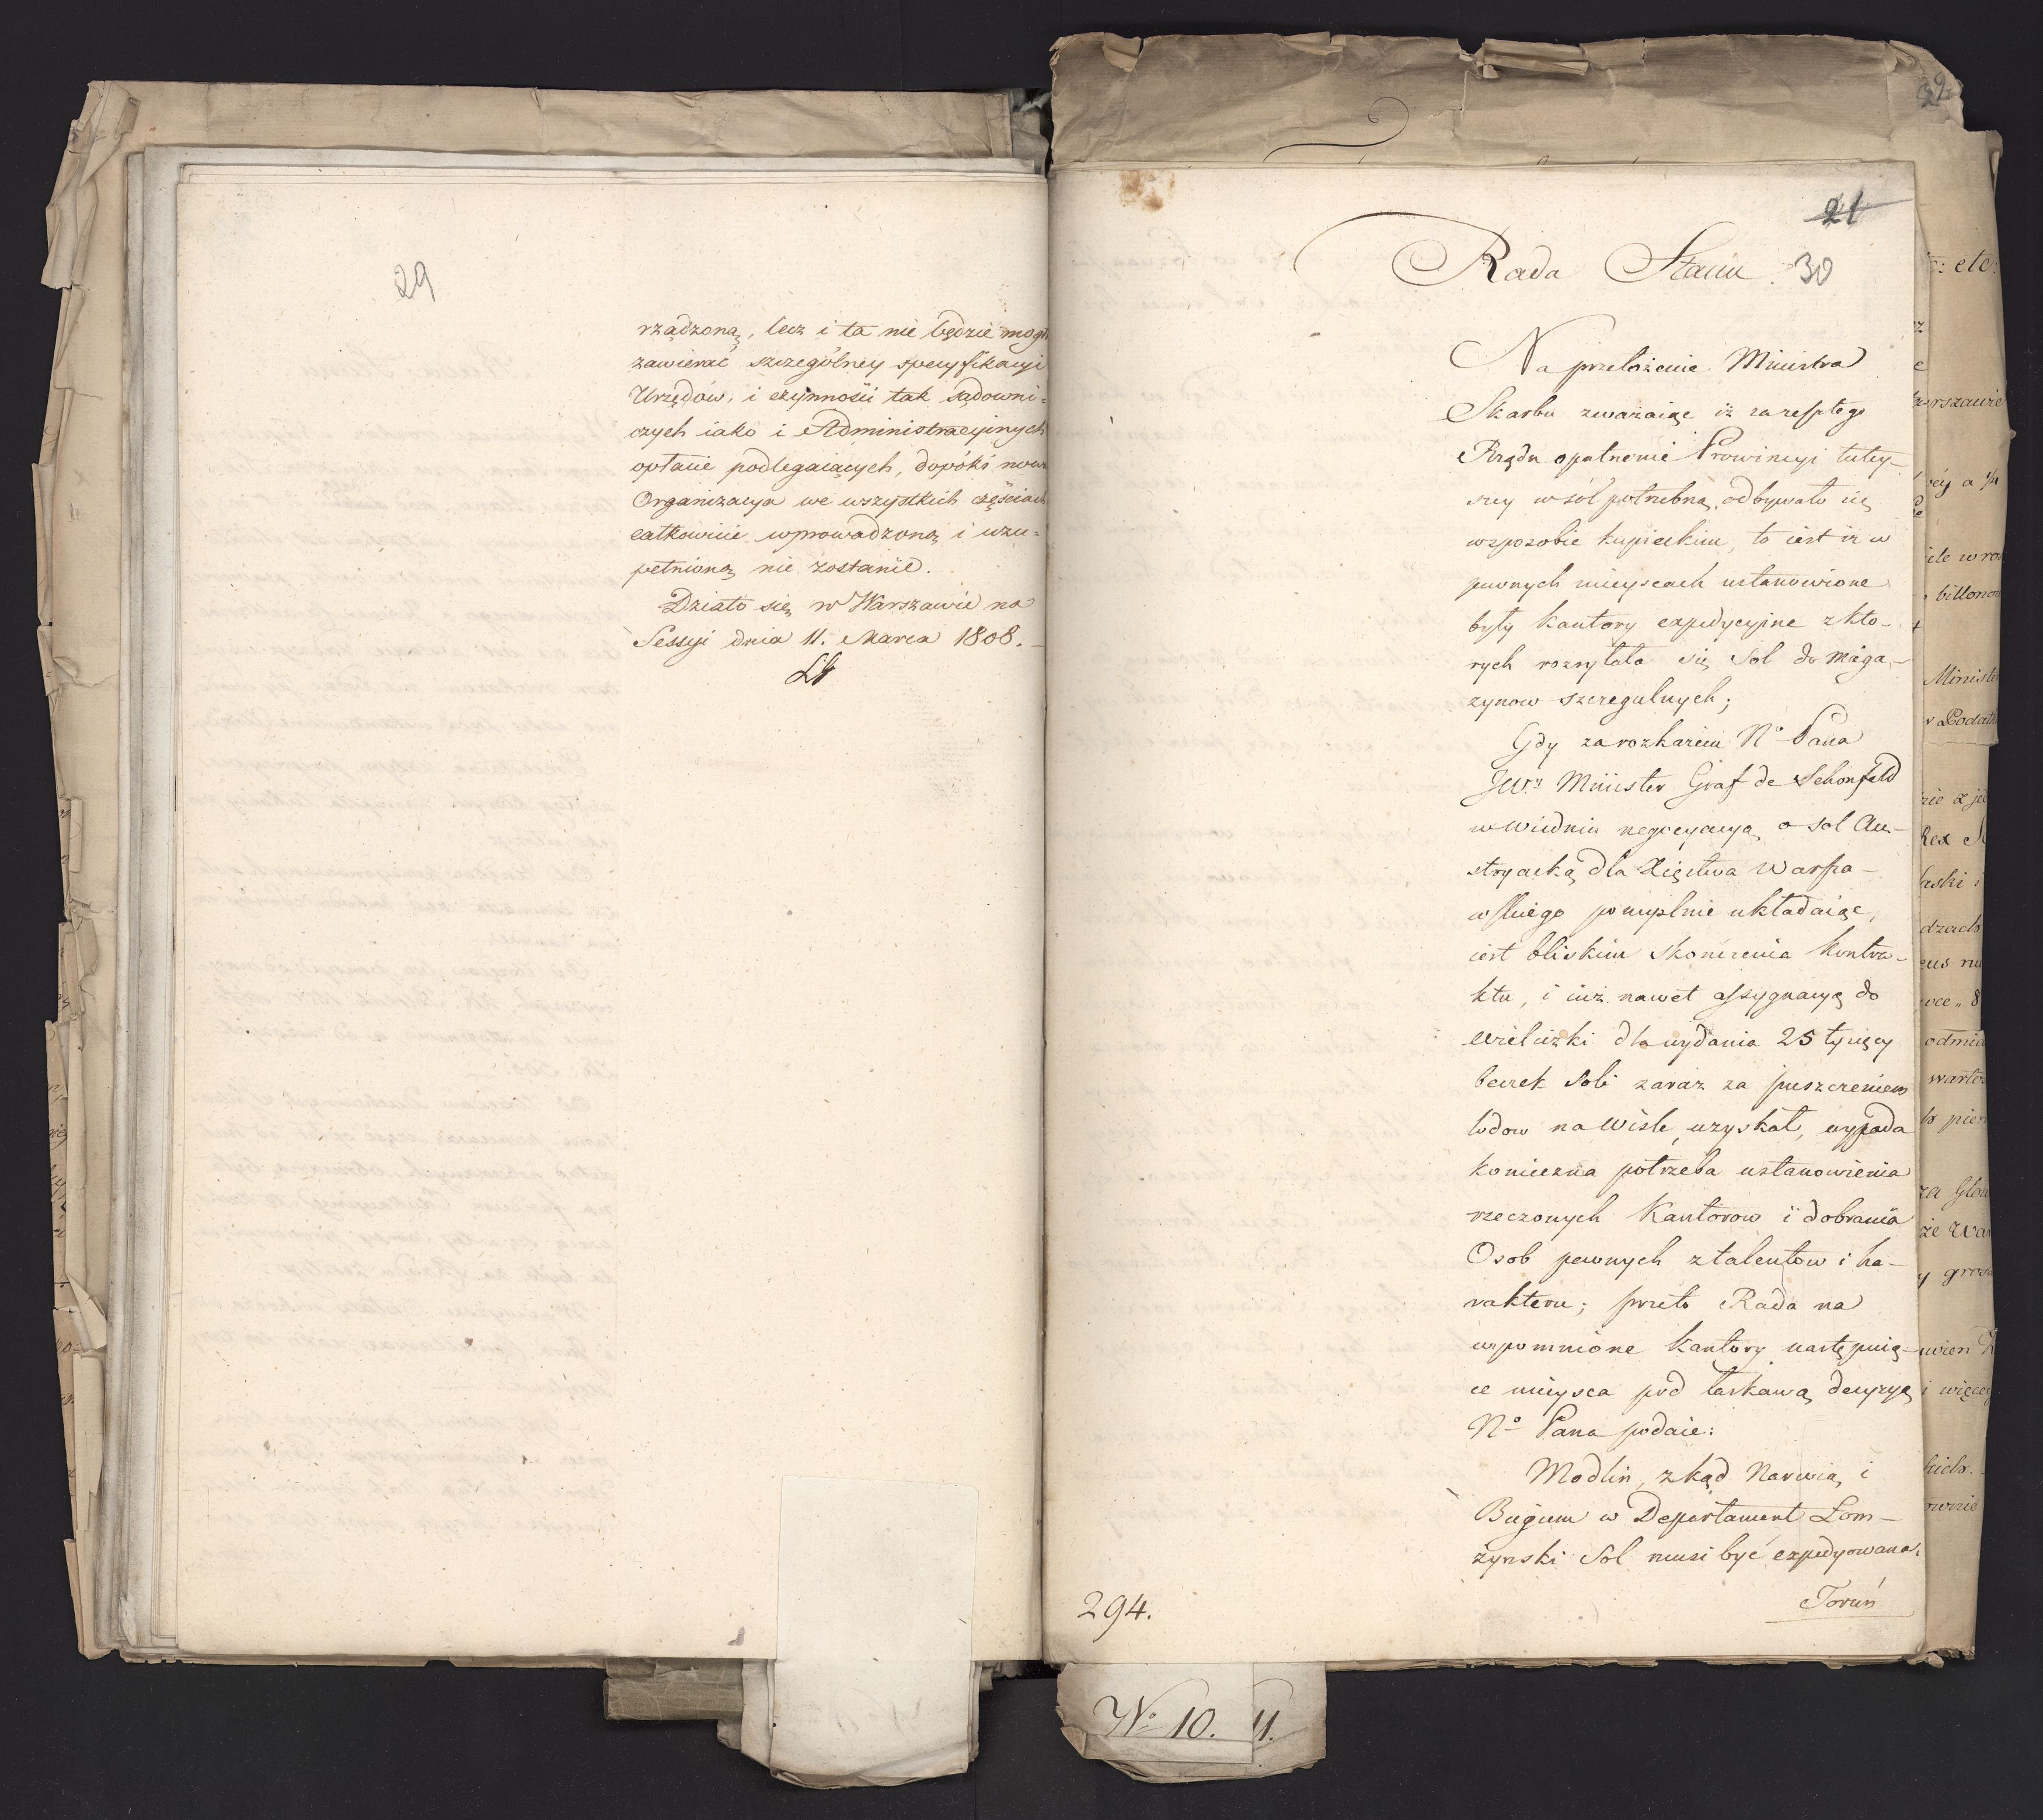 29
rządzoną, lecz i ta nie będzie mogła
zawierać szczególney specyfikacyi
Urzędów, i czynności tak sądowni=
czych iako i Administracyinych
opłacie podlegaiących, dopóki nowa
Organizacya we wszystkich częściach
całkowicie wprowadzoną i uzu=
pełnioną nie zostanie.
Działo się w Warszawie na
Sessyi dnia 11. Marca 1808.
29
21
Rada Stanu
30
Na przełożenie Ministra
Skarbu zważaiąc iż za reszłego
Rządu opatrzenie Prowincyi tutey-
szey w sól potrzebną, odbywało się
w sposobie kupieckim, to iest iż w
pewnych mieyscach ustanowione
były kantory expedycyine z któ-
rych rozsyłała się Sol do maga-
zynow szczegulnych;
Gdy za rozkazem No Pana
JWny Minister Graf de Schönfeld
w Wiedniu negocyacyą o sol Au-
stryacką dla Xięstwa Warsza-
wskiego pomyślnie układaiąc,
iest bliskim skończenia kontra-
ktu, i iuż nawet assygnacyą do
Wieliczki dla wydania 25 tysięcy
beczek Soli zaraz za puszczeniem
lodow na Wiśle uzyskał, wypada
konieczna potrzeba ustanowienia
rzeczonych Kantorow i dobrania
Osob pewnych z talentow i ha-
rakteru; przeto Rada na
wspomnione kantory następuią-
ce mieysca pod łaskawą decyzyą
No Pana podaie:
Modlin, zkąd Narwią i
Bugiem w Departament Łom-
żynski Sol musi być expedyowana.
Toruń
294.
No 10. 11.
etc: